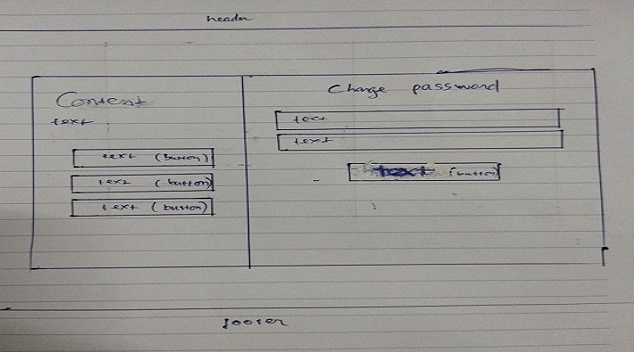 header
Content
text
text (button)
text (button)
text (button)
Change password
text
text
text (button)
footer